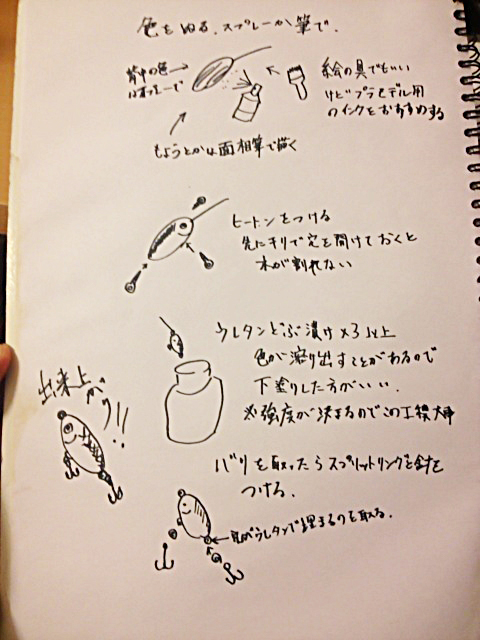 色をぬる、スプレーか筆で。
背中の色→
絵の具でもいい
けどプラモデル用
のインクをおすすめする
もようとかは面相筆で描く
ヒートンをつける
先にキリで穴を開けておくと
木が割れない
ウレタンどぶ漬け×3以上
色が溶け出すことがあるので
下塗りした方がいい.
※強度が決まるのでこの工程大事
出来上がり!!
バリを取ったらスプリットリングと針を
つける.
←穴がウレタンで埋まるのを取る.